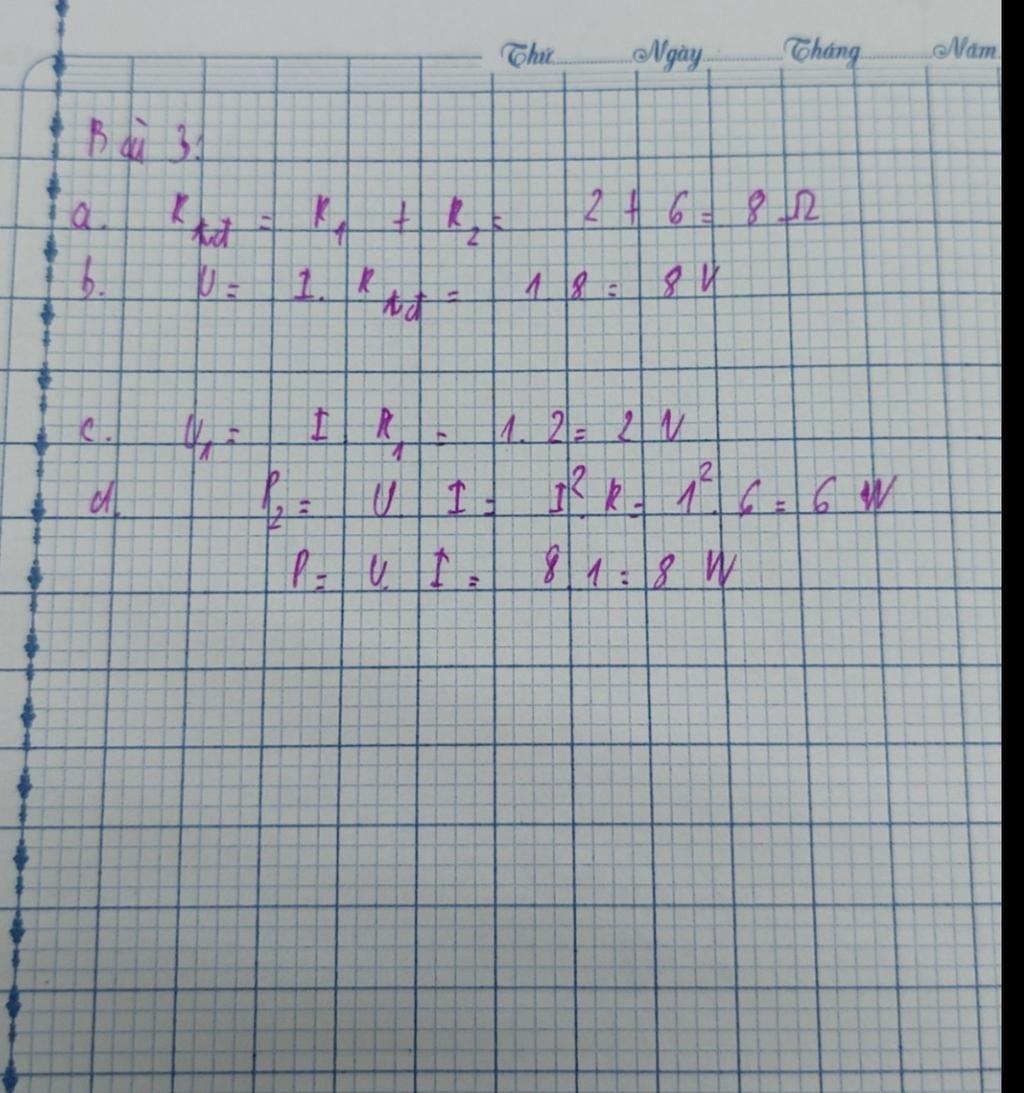 Thứ Ngày Tháng Năm
Bài 3:
a. Rtđ = R1 + R2 = 2 + 6 = 8 Ω
b. U = I. Rtđ = 1. 8 = 8 V
c. U1 = I R1 = 1. 2 = 2 V
d. P2 = U I = I². R = 1². 6 = 6 W
P = U. I = 8. 1 = 8 W